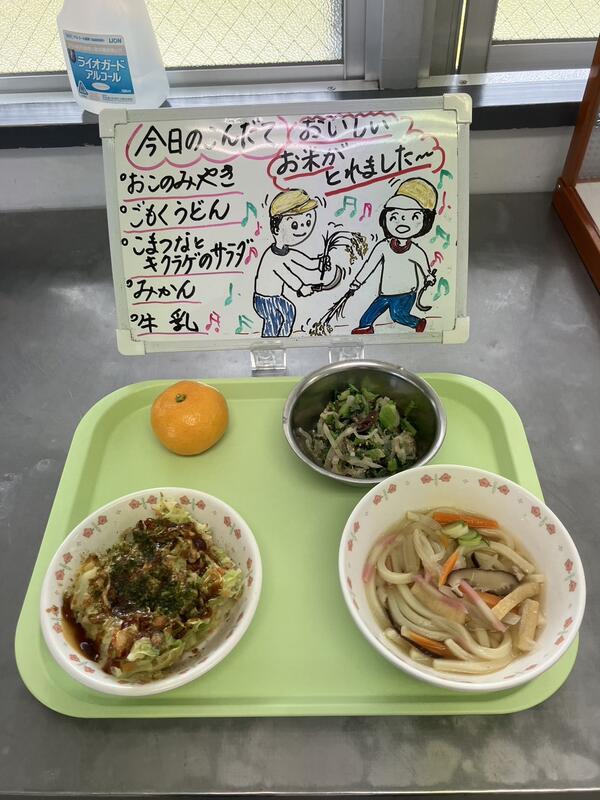 LION
ライオガード
アルコール
今日のこんだて
おいしい
お米が
とれました～
°おこのみやき
°ごもくうどん
°こまつなと
キクラゲのサラダ
°みかん
°牛乳